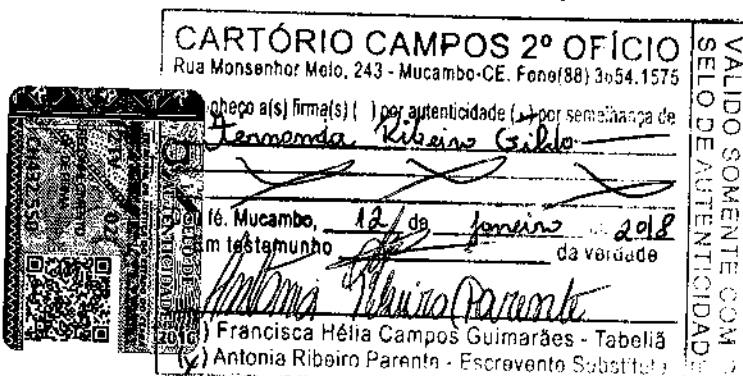 CARTÓRIO CAMPOS 2º OFÍCIO
Rua Monsenhor Melo, 243 - Mucambo-CE. Fone(88) 3654.1575
nheço a(s) firma(s) ( ) por autenticidade ( ) por semelhança de
Fernanda Ribeiro Gildo
fé. Mucambo, 12 de janeiro de 2018
m testemunho da verdade
Antonia Ribeiro Parente
) Francisca Hélia Campos Guimarães - Tabeliã
(x) Antonia Ribeiro Parente - Escrevente Substituta
VALIDO SOMENTE COM O
SELO DE AUTENTICIDAD